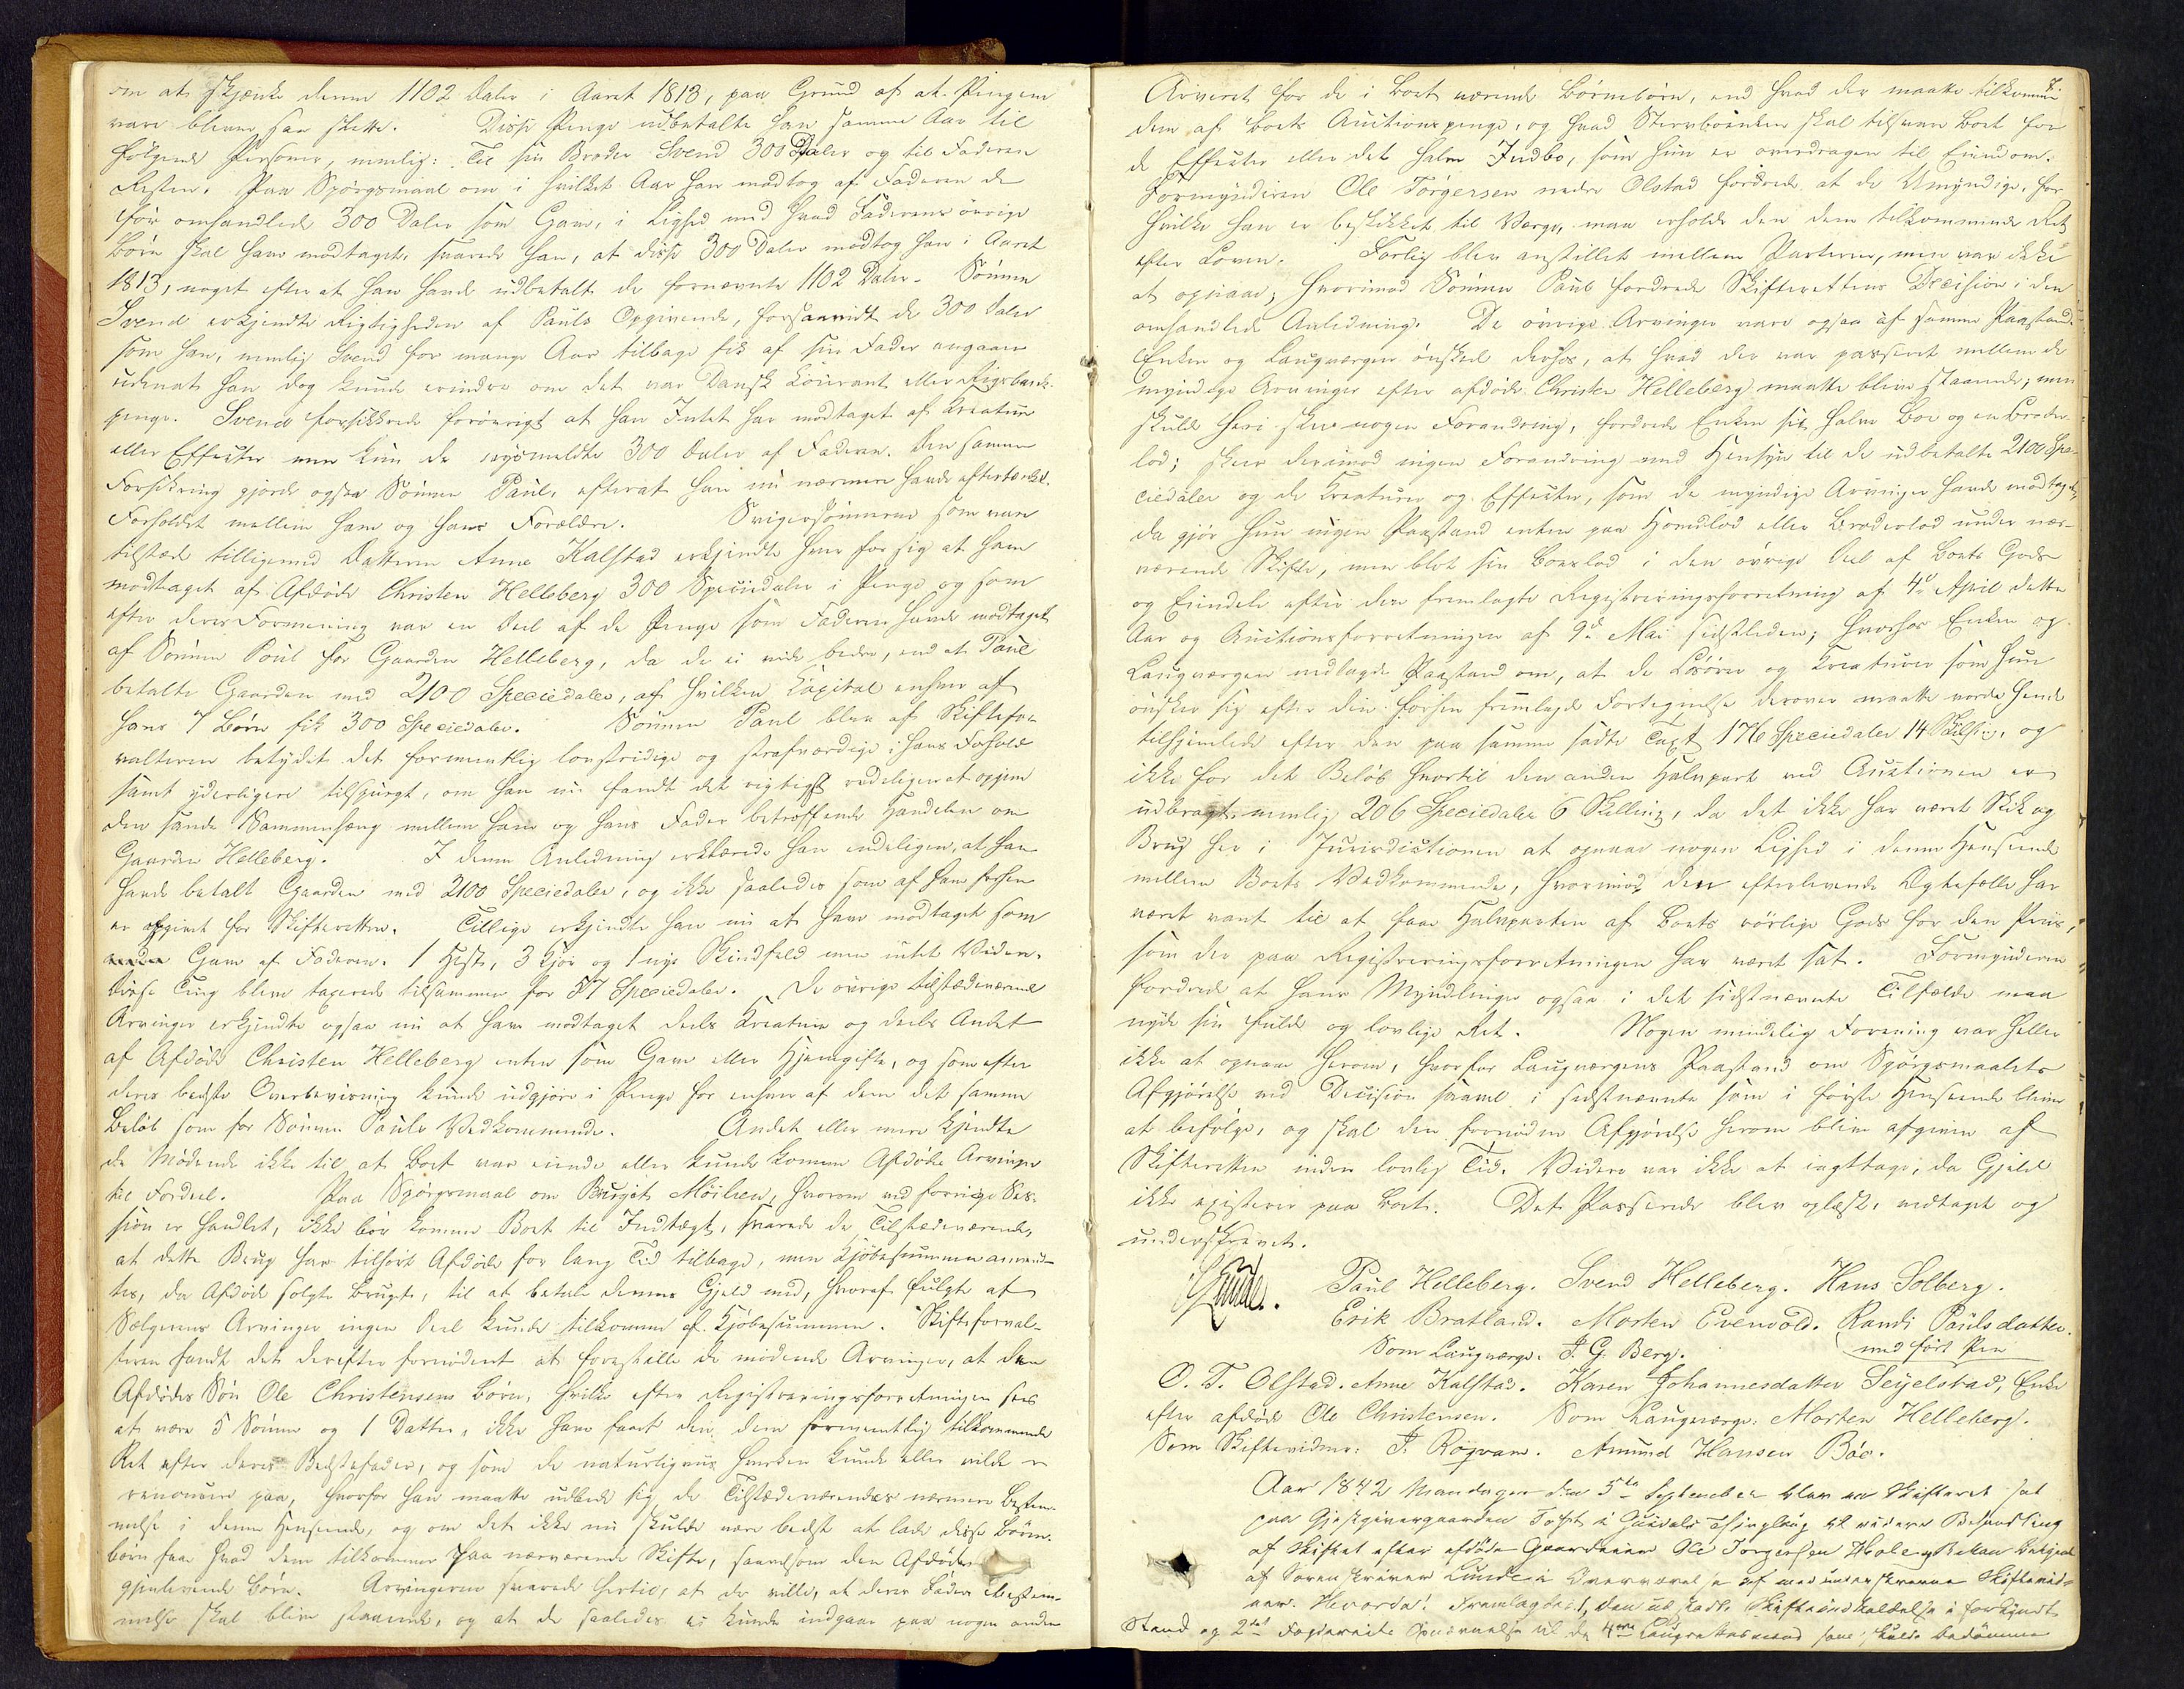 om at skjænke denne 1102 Daler i Aaret 1813, paa Grund af at Pengene
vare blevne saa slette. Disse Penge udbetalte han samme Aar til
følgende Personer, nemlig: Til sin Broder Svend 300 Daler og til Faderen
Resten. Paa Spørgsmaal om i hvilket Aar han modtog af Faderen de
før omhandlede 300 Daler som Gave, i Lighed med hvad Faderens øvrige
Børn skal have modtaget, svarede han, at disse 300 Daler modtog han i Aaret
1813, noget efter at han havde udbetalt de fornævnte 1102 Daler. Sønnen
Svend erkjendte Rigtigheden af Pauls Opgivende, forsaavidt de 300 Daler
som han, nemlig Svend for mange Aar tilbage fik af sin Fader angaaer
uden at han dog kunde erindre om det var Dansk Courant eller Rigsbank-
penge. Svend forsikkrede forøvrigt at han Intet har modtaget af Kreature
eller Effecter men kun de ovenmeldte 300 Daler af Faderen. Den samme
Forsikring gjorde ogsaa Sønnen Paul, efterat han nu nærmere havde eftertænkt
Forholdet mellem ham og hans Forældre. Svigersønnerne som vare
tilstæde tilligemed Datteren Anne Kalstad erkjendte hver for sig at have
modtaget af Afdøde Christen Helleberg 300 Speciedaler i Penge og som
efter deres Formening var en Deel af de Penge som Faderen havde modtaget
af Sønnen Poul for Gaarden Helleberg, da de ei vide bedre, end at Paul
betalte Gaarden med 2100 Speciedaler, af hvilken Capital enhver af
hans 7 Børn fik 300 Speciedaler. Sønnen Paul blev af Skiftefor-
valteren betydet det formentlig lovstridige og strafværdige i hans Forhold
samt yderligere tilspurgt, om han nu fandt det rigtigst redeligen at opgive
den sande Sammenhæng mellem ham og hans Fader betræffende Handelen om
Gaarden Helleberg. I denne Anledning erklærede han endeligen, at han
havde betalt Gaarden med 2100 Speciedaler, og ikke saaledes som af ham forhen
er opgivet for Skifteretten. Tillige erkjendte han nu at have modtaget som
Gave af Faderen 1 Hest, 3 Kjør og 1 nye Skindfeld men intet Videre.
Disse Ting bleve taxerede tilsammen for 57 Speciedaler. De øvrige tilstædeværende
Arvinger erkjendte ogsaa nu at have modtaget deels Kreature og deels Andet
af Afdøde Christen Helleberg enten som Gave eller Hjemgifte, og som efter
deres bedste Overbeviisning kunde udgjøre i Penge for enhver af dem det samme
Beløb som for Sønnen Pauls Vedkommende. Andet eller mere kjendte
de Mødende ikke til at Boet var eiende eller kunde komme Afdødes Arvinger
til Fordeel. Paa Spørgsmaal om Bruget Møilien, hvorom ved forrige Ses-
sion er handlet, ikke bør komme Boet til Indtægt, svarede de Tilstædeværende,
at dette Brug har tilhørt Afdøde for lang Tid tilbage, men Kjøbesummen anvend-
tes, da Afdøde solgte Bruget, til at betale dennes Gjeld med, hvoraf fulgte at
Sælgerens Arvinger ingen Deel kunde tilkomme af Kjøbesummen. Skifteforval-
teren fandt det derefter fornødent at forestille de mødende Arvinger, at den
Afdødes Søn Ole Christensens Børn, hvilke efter Registreringsforretningen sees
at være 5 Sønner og 1 Datter, ikke have faaet den dem formentlig tilkommende
Ret efter deres Bedstefader, og som de naturligviis hverken kunde eller vilde
renoncere paa, hvorfor han maatte udbede sig de Tilstædeværendes nærmere Bestem-
melse i denne Henseende, og om det ikke nu skulde være bedst at lade disse Børne-
børn faae hvad dem tilkommer paa nærværende Skifte, saavelsom den Afdødes
gjenlevende Børn. Arvingerne svarede hertil, at de ville, at deres Faders Bestem-
melse skal blive staaende, og at de saaledes ei kunde indgaae paa nogen anden
8.
Arveret for de i Boet værende Børnebørn, end hvad der maatte tilkomme
dem af Boets Auctionspenge, og hvad Stervboenken skal tilsvare Boet for
de Effecter eller det halve Indbo, som hun er overdragen til Eiendom.
Formynderen Ole Torgersen nedre Olstad fordrede at de Umyndige, for
hvilke han er beskikket til Værge, maa erholde den dem tilkommende Ret
efter Loven. Forlig blev anstillet mellem Parterne, men var ikke
at opnaae; hvorimod Sønnen Paul fordrede Skifterettens Decision i den
omhandlede Anledning. De øvrige Arvinger vare ogsaa af samme Paastand.
Enken og Laugværgen ønskede derhos, at hvad der var passeret mellem de
myndige Arvinger efter afdøde Christen Helleberg maatte blive staaende; men
skulde heri skee nogen Forandring, fordrede Enken sit halve Boe og en Broder-
lod; skeer derimod ingen Forandring med Hensyn til de udbetalte 2100 Spe-
ciedaler og de Kreaturer og Effecter, som de myndige Arvinger havde modtaget,
da gjør hun ingen Paastand enten paa Hovedlod eller Broderlod under nær-
værende Skifte, men blot sin Boeslod i den øvrige Deel af Boets Gods
og Eiendele efter den fremlagte Registreringsforretning af 4de April dette
Aar og Auctionsforretningen af 9de Mai sidstleden; hvorhos Enken og
Laugværgen nedlagde Paastand om, at de Løsøre og Kreaturer som hun
ønsker sig efter den forhen fremlagde Fortegnelse derover maatte vorde hende
tilhjemlede efter den paa samme sadte Taxt 176 Speciedaler 14 Skilling, og
ikke for det Beløb hvortil den anden Halvpart ved Auctionen er
udbragt nemlig 206 Speciedaler 6 Skilling, da det ikke har været Skik og
Brug her i Jurisdictionen at opnaae nogen Lighed i denne Henseende
mellem Boets Vedkommende, hvorimod den efterlevende Ægtefælle har
været vant til at faae Halvparten af Boets rørlige Gods for den Priis,
som der paa Registreringsforretningen har været sat. Formynderen
fordrede at hans Myndlinger ogsaa i det sidstnævnte Tilfælde maa
nyde sin fulde og lovlige Ret. Nogen mindelig Forening var heller
ikke at opnaae herom, hvorfor Laugværgens Paastand om Spørgsmaalets
Afgjørelse ved Decision saavel i sidstnævnte som i første Henseende bliver
at befølge, og skal den fornødne Afgjørelse herom blive afgiven af
Skifteretten inden lovlig Tid. Videre var ikke at iagttage, da Gjeld
ikke existerer paa Boet. Det Passerede blev oplæst, vedtaget og
underskrevet.
Lunde. Paul Helleberg. Svend Helleberg. Hans Solberg.
Erik Bratland. Morten Evenvold. Randi Paulsdatter.
Som Laugværge: P. G. Berg. med ført Pen
O. T. Olstad. Anne Kalstad. Karen Johannesdatter Seielstad, Enke
efter afdøde Ole Christensen. Som Laugværge: Morten Helleberg.
Som Skiftevidner: P. Rojvam. Amund Hansen Bøe.
Aar 1842 Mandagen den 5te September blev en Skifteret sat
paa Gjæstgivergaarden Tofte i Gusdals Thinglaug til videre Behandling
af Skiftet efter afdøde Gaardeier Ole Torgersen Betjent
af Sorenskriver Lunde i Overværelse af med underskrevne Skiftevid-
ner. Hvorda! Fremlagdes 1, den udstædte Skifteindkaldelse i forkyndt
Stand og 2det Fogdens Opnævnelse til de 4re Laugrettesmænd som skulde bedømme